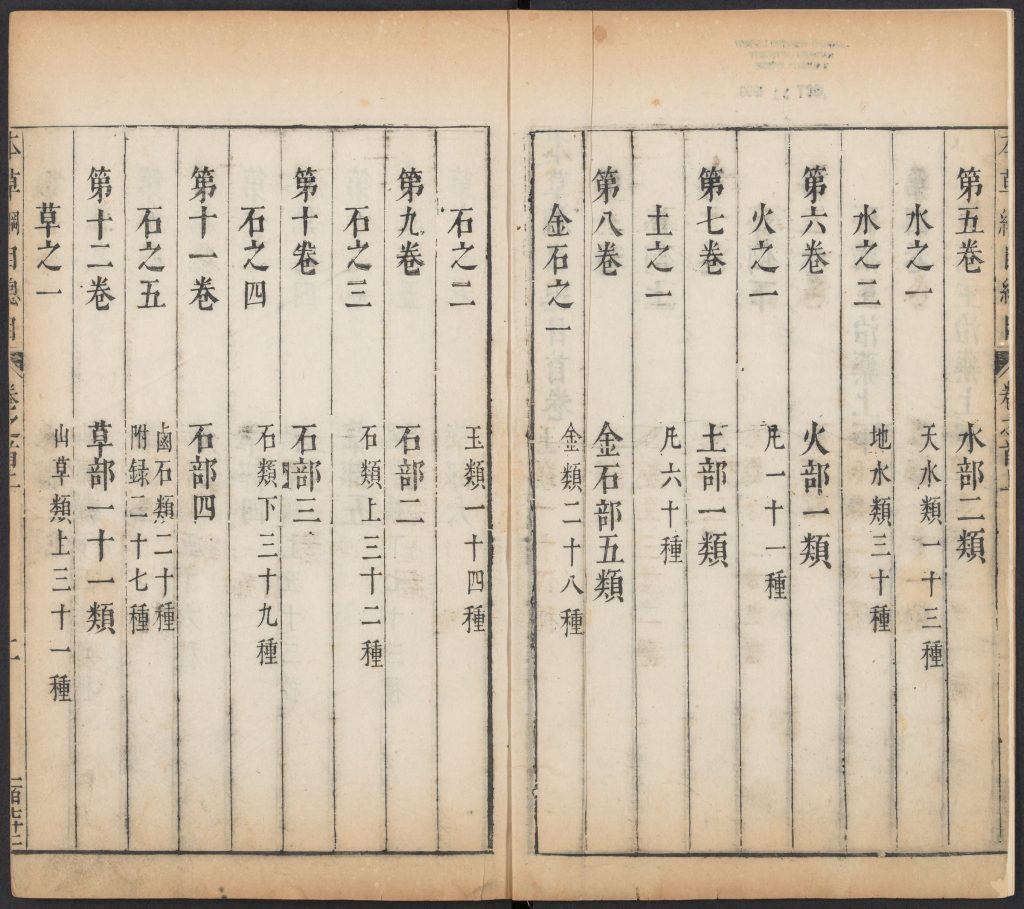 第五卷 水部二類
水之一 天水類一十三種
水之二 地水類三十種
第六卷 火部一類
火之一 凡一十一種
第七卷 土部一類
土之一 凡六十種
第八卷 金石部五類
金石之一 金類二十八種
石之二 玉類一十四種
第九卷 石部二
石之三 石類上三十二種
第十卷 石部三
石之四 石類下三十九種
第十一卷 石部四
石之五 鹵石類二十種
附録二十七種
第十二卷 草部一十一類
草之一 山草類上三十一種
本草綱目總目